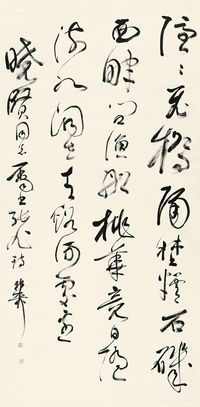 隱隱飛橋隔埜煙石磯
西畔問漁船桃華盡日隨
流水洞在青谿何處邊
賢同志屬書張旭詩